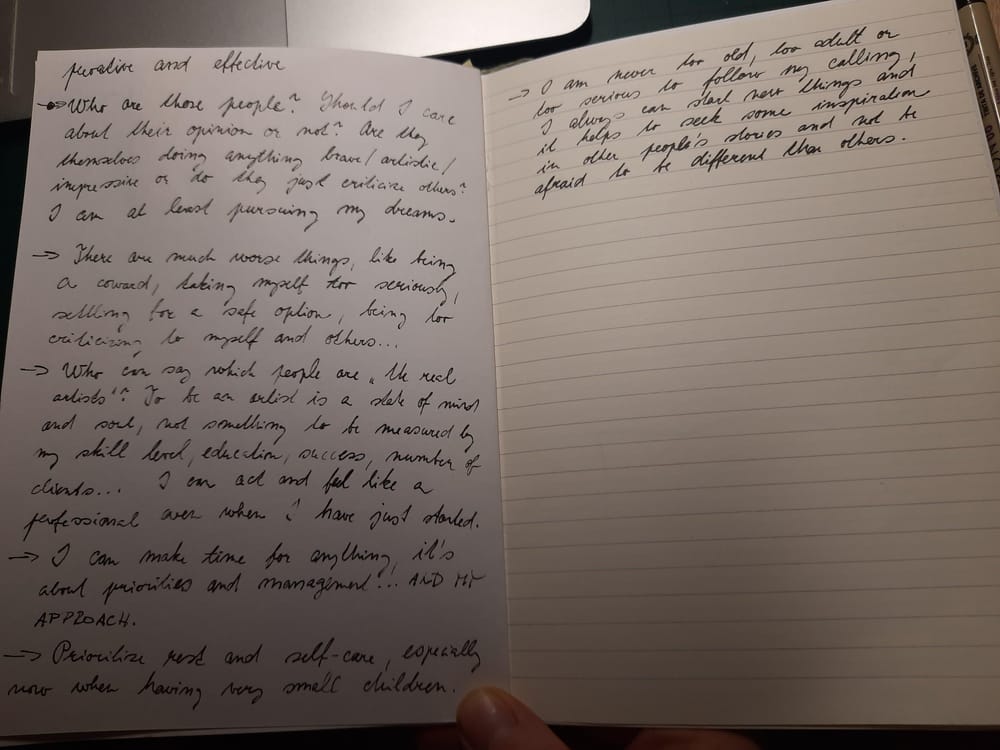 and effective
→ Who are those people? Should I care
about their opinion or not? Are they
themselves doing anything brave/artistic/
impressive or do they just criticize others?
I am at least pursuing my dreams.
→ There are much worse things, like being
a coward, taking myself too seriously,
settling for a safe option, being too
criticizing to myself and others...
→ Who can say which people are „the real
artists"? To be an artist is a state of mind
and soul, not something to be measured by
my skill level, education, success, number of
clients... I can act and feel like a
professional even when i have just started.
→ I can make time for anything, it's
about priorities and management!.. AND MY
APPROACH.
→ Prioritize rest and self-care, especially
now when having very small children.
→ I am never too old, too adult or
too serious to follow my calling,
I always can start new things and
it helps to seek some inspiration
in other people's stories and not be
afraid to be different than others.